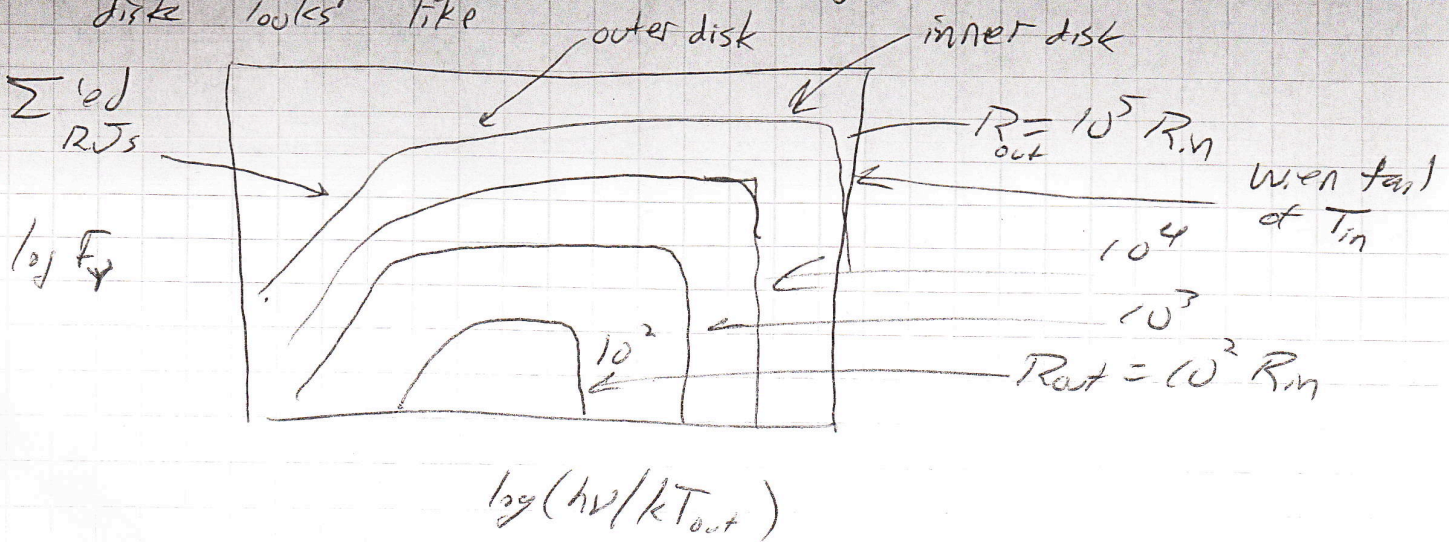 disk looks like
outer disk
inner disk
Σ'ed
RJs
R_out = 10^5 R_in
Wien tail
of T_in
10^4
log F_ν
10^3
10^2
R_out = 10^2 R_in
log(hν/kT_out)